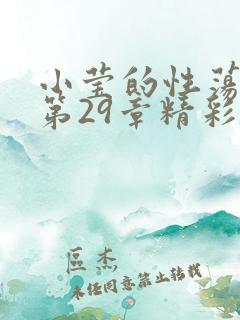 小莹的性荡
第29章精彩
区杰
未经同意禁止转载